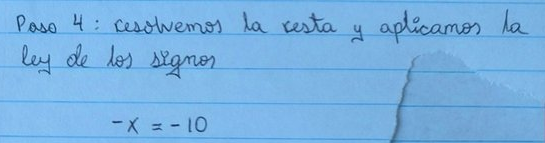 Paso 4: resolvemos la resta y aplicamos la
ley de los signos
-x = -10